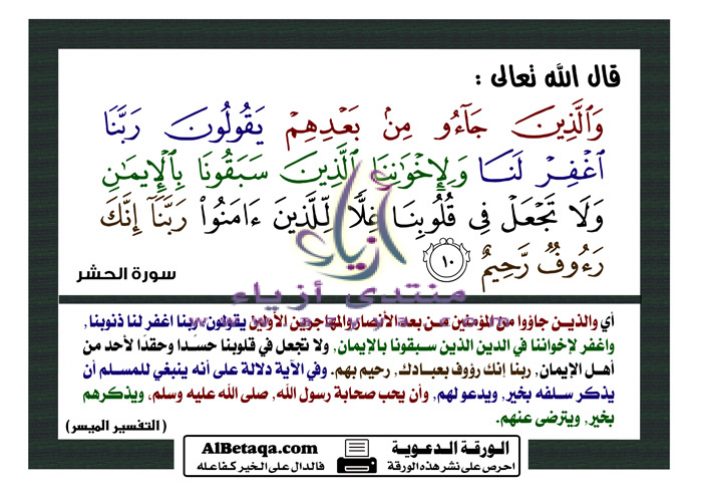 قال الله تعالى :
وَٱلَّذِينَ جَآءُو مِنۢ بَعْدِهِمْ يَقُولُونَ رَبَّنَا
ٱغْفِرْ لَنَا وَلِإِخْوَٰنِنَا ٱلَّذِينَ سَبَقُونَا بِٱلْإِيمَٰنِ
وَلَا تَجْعَلْ فِى قُلُوبِنَا غِلًّا لِّلَّذِينَ ءَامَنُوا۟ رَبَّنَآ إِنَّكَ
رَءُوفٌ رَّحِيمٌ ١٠
سورة الحشر
أزياء
منتدى أزياء
أي والذين جاؤوا من المؤمنين من بعد الأنصار والمهاجرين الأولين يقولون: ربنا اغفر لنا ذنوبنا,
واغفر لإخواننا في الدين الذين سبقونا بالإيمان, ولا تجعل في قلوبنا حسدًا وحقدًا لأحد من
أهل الإيمان, ربنا إنك رؤوف بعبادك, رحيم بهم. وفي الآية دلالة على أنه ينبغي للمسلم أن
يذكر سلفه بخير, ويدعو لهم, وأن يحب صحابة رسول الله, صلى الله عليه وسلم, ويذكرهم
بخير, ويترضى عنهم.
(التفسير الميسر)
الورقة الدعوية
احرص على نشر هذه الورقة
AlBetaqa.com
فالدال على الخير كفاعله